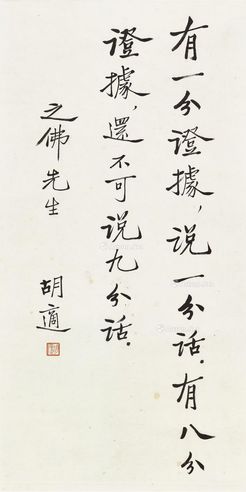 有一分證據,说一分话.有八分
證據,還不可说九分话.
之佛先生
胡適